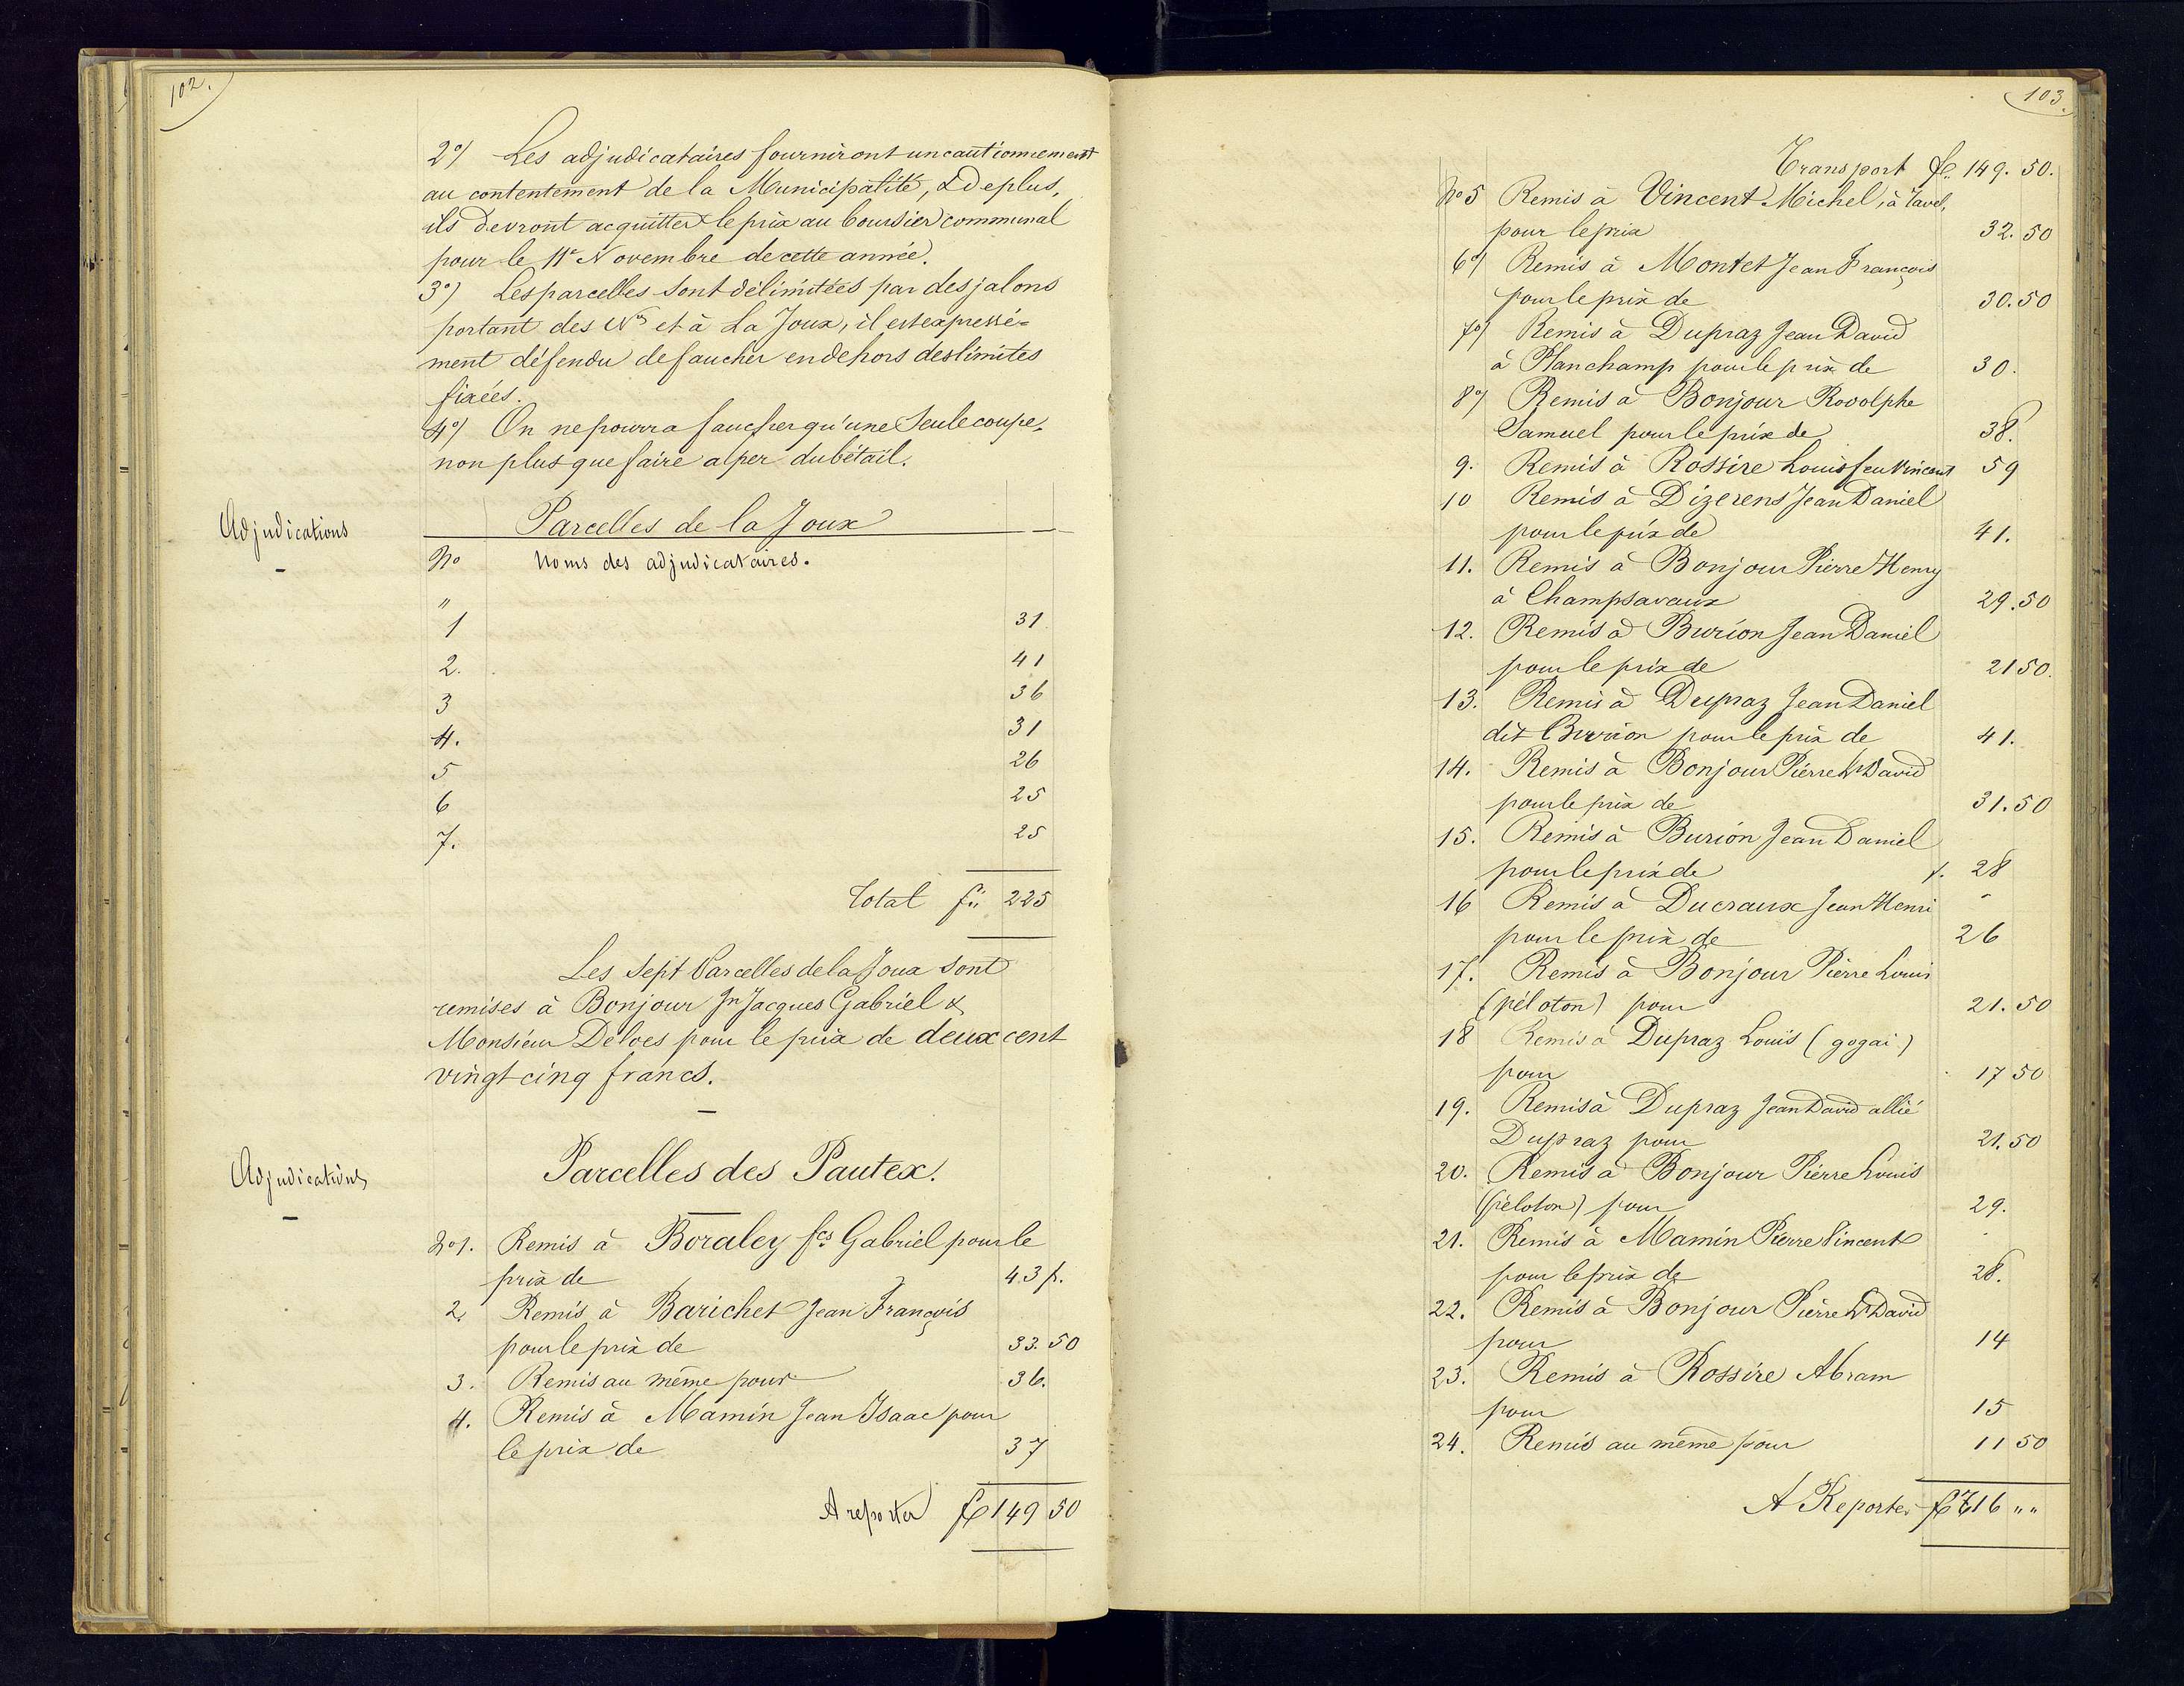 102.
2°/ Les adjudicataires fourniront un cautionnement
au contentement de la Municipalité, & de plus,
ils devront acquitter le prix au boursier communal
pour le 11e Novembre de cette année.
3°/ Les parcelles sont délimitées par des jalons
portant des Nos et à La Joux, il est expressé-
ment défendu de faucher en dehors des limites
fixées.
4°/ On ne pourra faucher qu'une seule coupe,
non plus que faire alper du bétail.
Adjudications
Parcelles de la Joux
No Noms des adjudicataires.
"
1 31
2. 41
3 36
4. 31
5 26
6 25
7. 25
Total f: 225
Les sept Parcelles de la Joux sont
remises à Bonjour Jn Jacques Gabriel &
Monsieur Deloes pour le prix de deux cent
vingt-cinq francs.
Adjudications
Parcelles des Pautex.
Remis à Boraley fcs Gabriel pour le
prix de 43 f.
2. Remis à Barichet Jean François
pour le prix de 33.50
3. Remis au même pour 36.
4. Remis à Mamin Jean Isaac pour
le prix de 37
A reporter fr 149 50
103.
Transport fr. 149.50.
No 5 Remis à Vincent Michel, à Tavel,
pour le prix 32.50
6°/ Remis à Montet Jean François
pour le prix de 30.50
7°/ Remis à Dupraz Jean David
à Planchamp pour le prix de 30.
8°/ Remis à Bonjour Rodolphe
Samuel pour le prix de 38.
9. Remis à Rossire Louis feu Vincent 59
10 Remis à Dizerens Jean Daniel
pour le prix de 41.
11. Remis à Bonjour Pierre Henry
à Champsavaux 29.50
12. Remis à Burion Jean Daniel
pour le prix de 21 50.
13. Remis à Dupraz Jean Daniel
dit Burion pour le prix de 41.
14. Remis à Bonjour Pierre Ls David
pour le prix de 31.50
15. Remis à Burion Jean Daniel
pour le prix de f. 28
16 Remis à Ducraux Jean Henri
pour le prix de 26
17. Remis à Bonjour Pierre Louis
(péloton) pour 21.50
18 Remis à Dupraz Louis (gogai)
pour 17 50
19. Remis à Dupraz Jean David allié
Dupraz pour 21.50
20. Remis à Bonjour Pierre Louis
(péloton) pour 29.
21. Remis à Mamin Pierre Vincent
pour le prix de 28.
22. Remis à Bonjour Pierre Ls David
pour 14
23. Remis à Rossire Abram
pour 15
24. Remis au même pour 11 50
A Reporter fr 716 " "